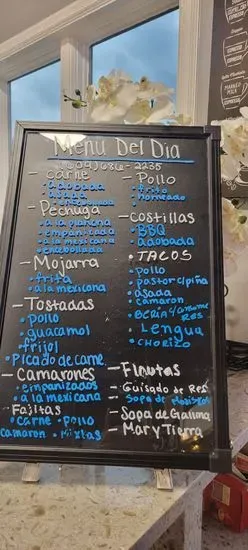 Menu Del Dia
- Carne
• adobada
• asada
• encebollada
- Pechuga
• a la plancha
• empanizada
• a la mexicana
• encebollada
- Mojarra
• frita
• a la mexicana
- Tostadas
• pollo
• guacamol
• frijol
• Picado de carne
- Camarones
• empanizados
• a la mexicana
Fajitas
• carne • Pollo
camaron • Mixtas
- Pollo
• frito
• horneado
- Costillas
• BBQ
• adobada
• TACOS
• Pollo
• pastor c/piña
• asada
• camaron
• Lengua
• CHORIZO
- Guisado de Res
- Sopa de Mariscos
- Sopa de Gallina
- Mar y Tierra